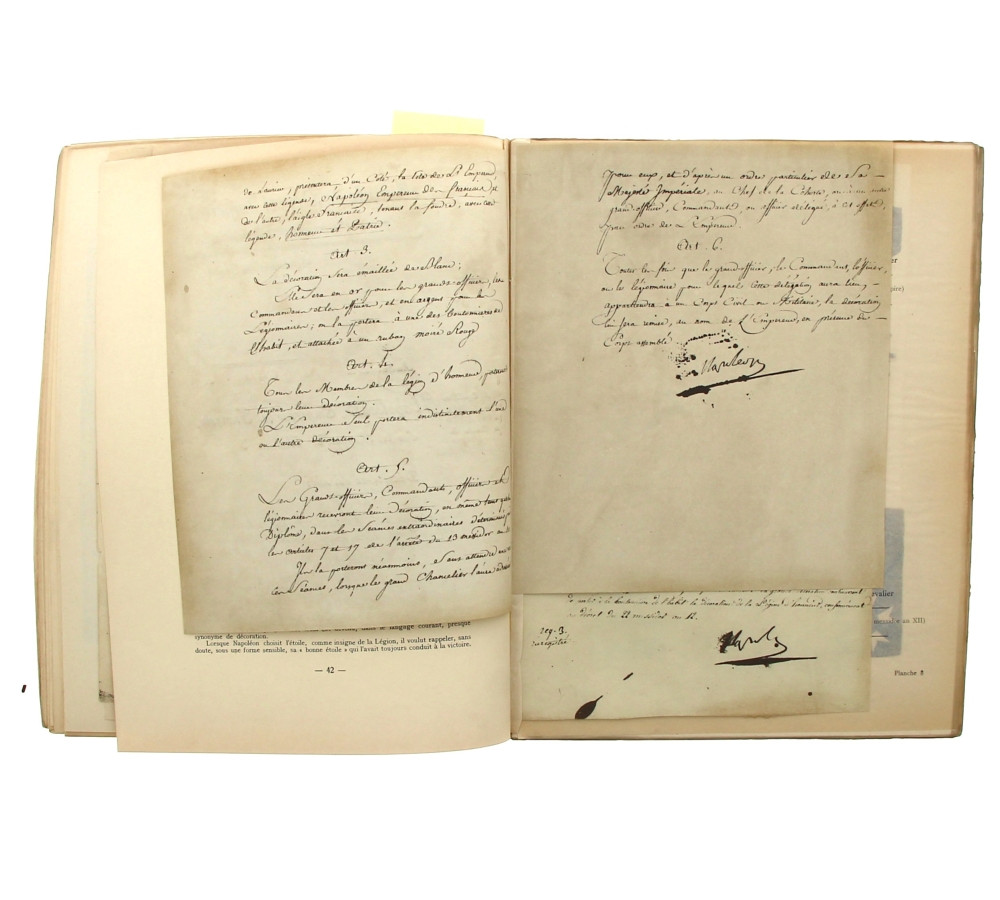 de Laurier, présentera d'un Coté, la tete de L'Empereur,
avec cette légende, Napoléon Empereur des français; et
de l'autre, l'aigle française, tenant la foudre, avec cette
légende, honneur et Patrie.
Art. 3.
La décoration sera émaillée de Blanc;
Elle sera en or pour les grands-officiers, les
Commandans et les officiers, et en argent pour les
Légionnaires; on la portera à une des boutonnières de
l'habit, et attachée à un ruban moiré Rouge
Art. 4.
Tous les Membres de la légion d'honneur porteront
toujours leur décoration.
L'Empereur seul portera indistinctement l'une
ou l'autre décoration.
Art. 5.
Les Grands-officiers, Commandants, officiers et
légionnaires recevront leur décoration, en même temps que leur
Diplôme, dans les Séances extraordinaires déterminées par
les articles 7 et 17 de l'arrêté du 13 messidor an
On la porteront néanmoins, sans attendre
ces Séances, lorsque le grand Chancelier l'aura
synonyme de décoration.
dans le langage courant, presque
Lorsque Napoléon choisit l'étoile, comme insigne de la Légion, il voulut rappeler, sans
doute, sous une forme sensible, sa « bonne étoile » qui l'avait toujours conduit à la victoire.
— 42 —
pour eux, et d'après un ordre particulier de Sa —
Majesté Impériale, au Chef de la Cohorte, ou à un autre
grand officier, Commandant, ou officier délégué à cet effet,
par ordre de l'Empereur.
Art. 6.
Toutes les fois que le grand-officier, le Commandant, l'officier,
ou le légionnaire pour lequel cette délégation aura lieu, —
appartiendra à un Corps Civil ou Militaire, la décoration
lui sera remise, au nom de L'Empereur, en présence du —
Corps assemblé.
Napoleon
de l'habit la décoration de la Légion d'honneur, conformément
décret du 22 messidor an 12.
reg. 3.
enregistré
Napole
valier
mensal « an XII)
Planche 8